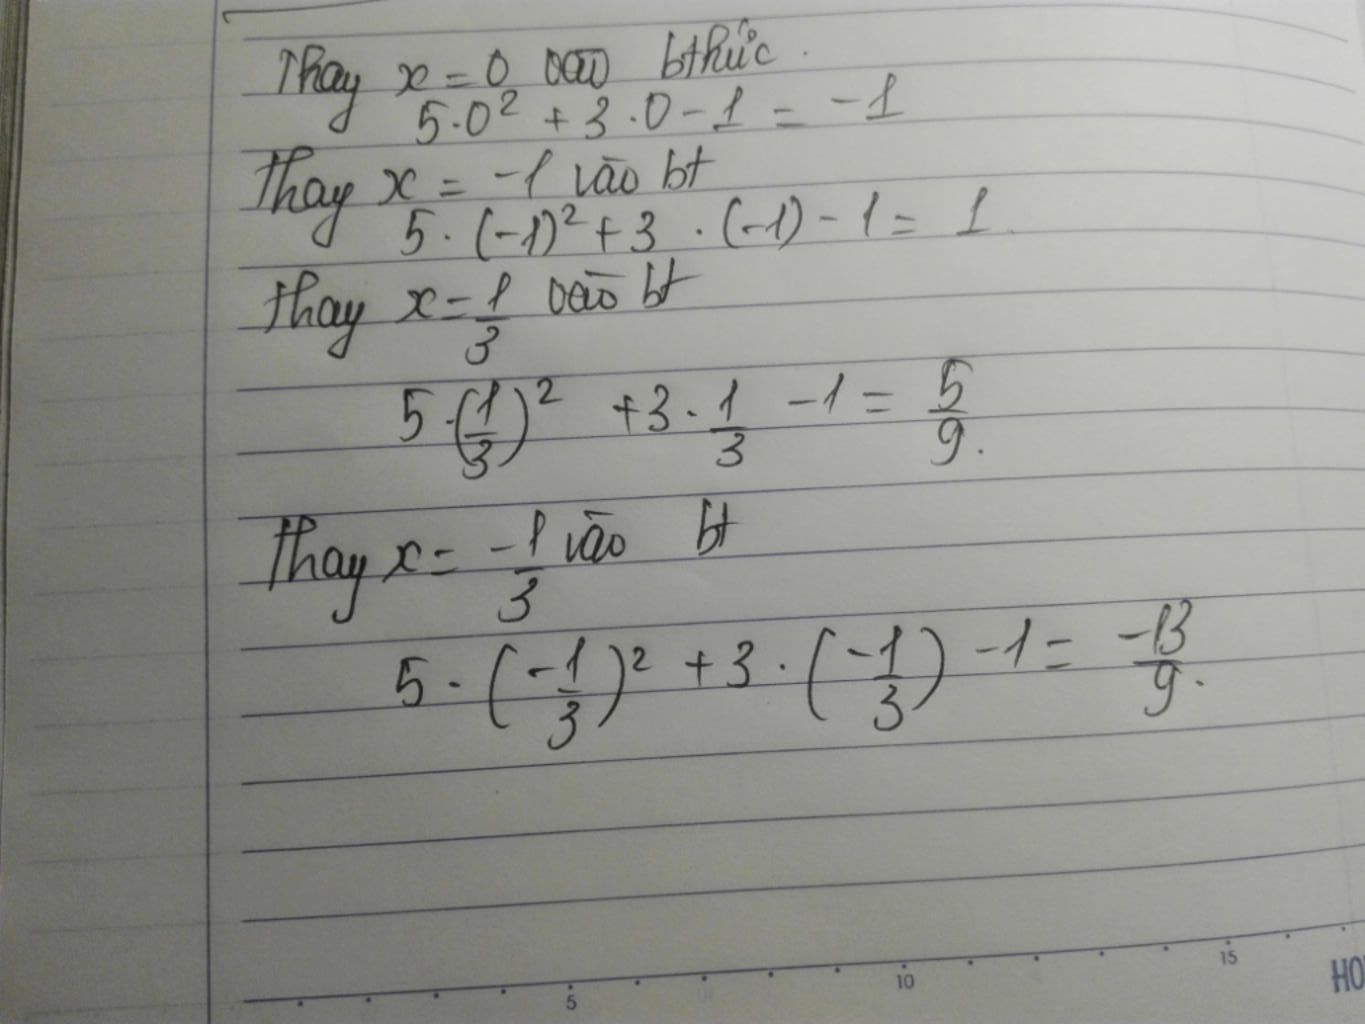 Thay x = 0 vào bthức.
5·0² + 3·0 - 1 = -1
Thay x = -1 vào bt
5·(-1)² + 3·(-1) - 1 = 1
thay x = 1/3 vào bt
5·(1/3)² + 3·1/3 - 1 = 5/9.
Thay x = -1/3 vào bt
5·(-1/3)² + 3·(-1/3) - 1 = -13/9.
5 10 15 HO